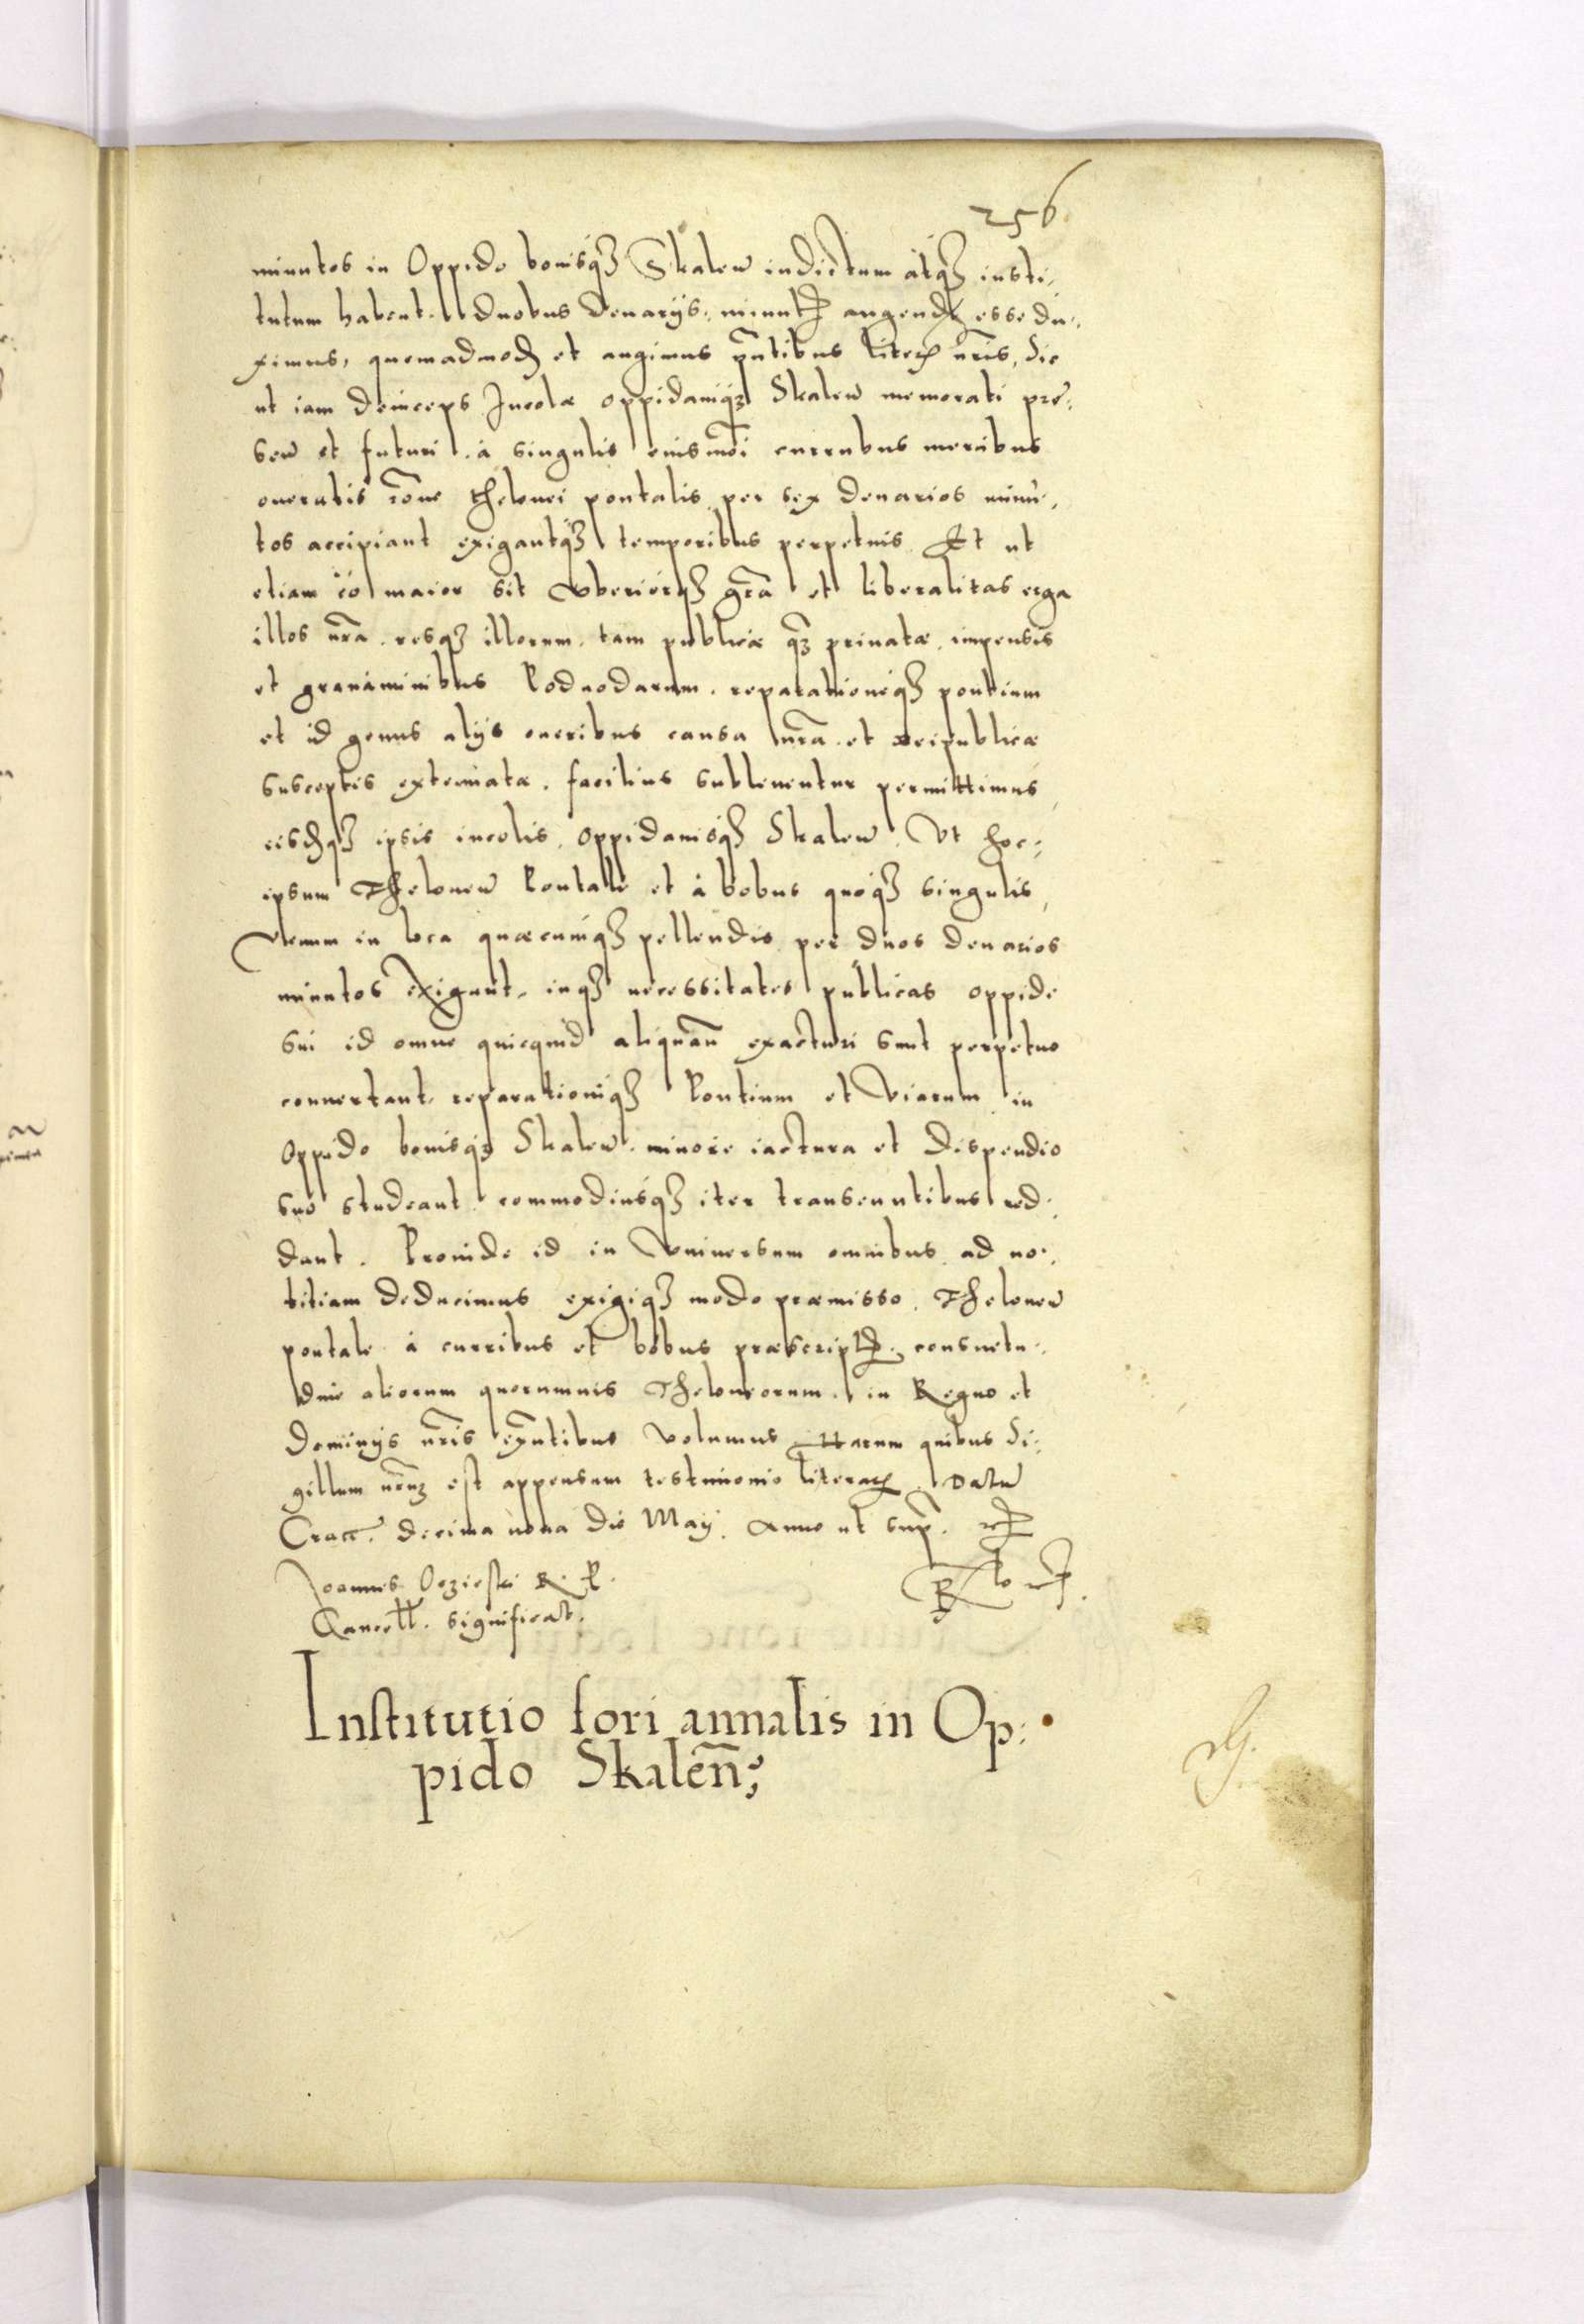 256
minutos in Oppido bonisqȝ Skalen indictum atqȝ insti,
tutum habent. duobus denarijs. minut augend esse du,
ximus, quemadmod et augimus pñtibus literꝭ nr̃is, Sic
ut iam deinceps Incolæ oppidaniqȝ Skalen memorati pre,
sen et futuri. à singulis eiusmõi curribus mercibus
oneratis rõne thelonei pontalis per sex denarios minu,
tos accipiant exigantqȝ temporibus perpetuis Et ut
etiam eo maior sit vberiorqȝ gr̃a et liberalitas erga
illos nr̃a. resqȝ illorum. tam publicæ qȝ priuatæ, impensis
et grauaminibus Podwodarum. reparationeqȝ pontium
et id genus alijs oneribus causa nr̃a. et reipublicæ
susceptis extenuatæ. facilius subleuentur permittimus
eisdqȝ ipsis incolis, oppidanisqȝ Skalen. Vt hoc,
ipsum Thelonew Pontale et à bobus quoqȝ singulis,
Venum in loca quæcunqȝ pellendis per duos denarios
minutos exigant, inqȝ necessitates publicas oppidi
sui id omne quicquid aliquañ exacturi sunt perpetuo
conuertant, reparationiqȝ Pontium et Viarum in
Oppido bonisqȝ Skalen. minore iactura et dispendio
suo studeant commodiusqȝ iter transeuntibus red,
dant. Proinde id in Vniuersum omnibus ad no,
titiam deducimus exigiqȝ modo præmisso. Thelonew
pontale à curribus et bobus præscript. consuetu,
dine aliorum quorumuis Theloneorum. in Regno et
Dominijs nr̃is exñtibus volumus Harum quibus Si,
gillum nr̃uȝ est appensum testimonio literaꝝ. Datu
Cracc. decima nona die Maij. Anno ut sup.
Joannes Oczieski R. P.
Cancell. significat.
Institutio fori annalis in Op,
pido Skaleñ;